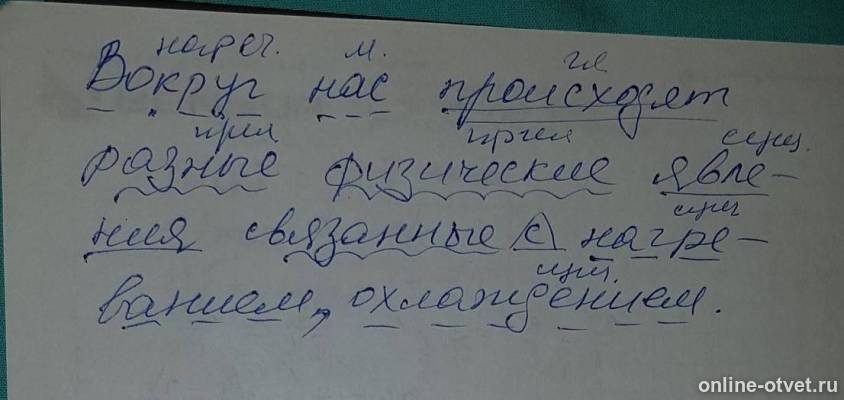 нареч. м. гл
Вокруг нас происходят
прил прил сущ.
разные физические явле-
сущ
ния связанные с нагре-
сущ.
ванием, охлаждением.
online-otvet.ru